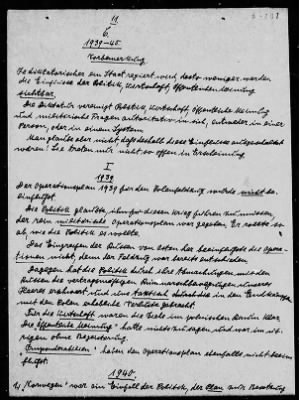 11.
6.
1939-45
Vorbemerkung
Je diktatorischer ein Staat regiert wird, desto weniger werden
die Einflüsse der Politik, Wirtschaft, öffentlichen Meinung
sichtbar.
Die Diktatur vereinigt Politik, Wirtschaft, öffentliche Meinung
und militärische Fragen autoritativ in sich, entweder in einer
Person, oder in einem System.
Man glaube aber nicht, dass deshalb diese Einflüsse ausgeschaltet
wären! Sie traten nur nicht so offen in Erscheinung.
I
1939
Der Operationsplan 1939 für den Polenfeldzug wurde nicht be-
einflusst.
Die Politik glaubte, ihn für diesen Krieg führen zu müssen,
der rein militärische Operationsplan war gegeben. Er rollte so
ab, wie die Politik es wollte.
Das Eingreifen der Russen von Osten her beeinflusste die Opera-
tionen nicht, denn der Feldzug war bereits entschieden.
Dagegen hat die Politik durch ihre Abmachungen mit den
Russen die
Heeres und
mit den Polen erhebliche Verluste gebracht.
Für die Wirtschaft waren die Ziele im polnischen Raum klar.
Die "öffentliche Meinung" hatte nichts zu sagen und war im üb-
rigen ohne Begeisterung.
haben den Operationsplan ebenfalls nicht beein-
flusst.
1940.
1.) "Norwegen" war ein Einfall der Politik, der Plan zur Besetzung